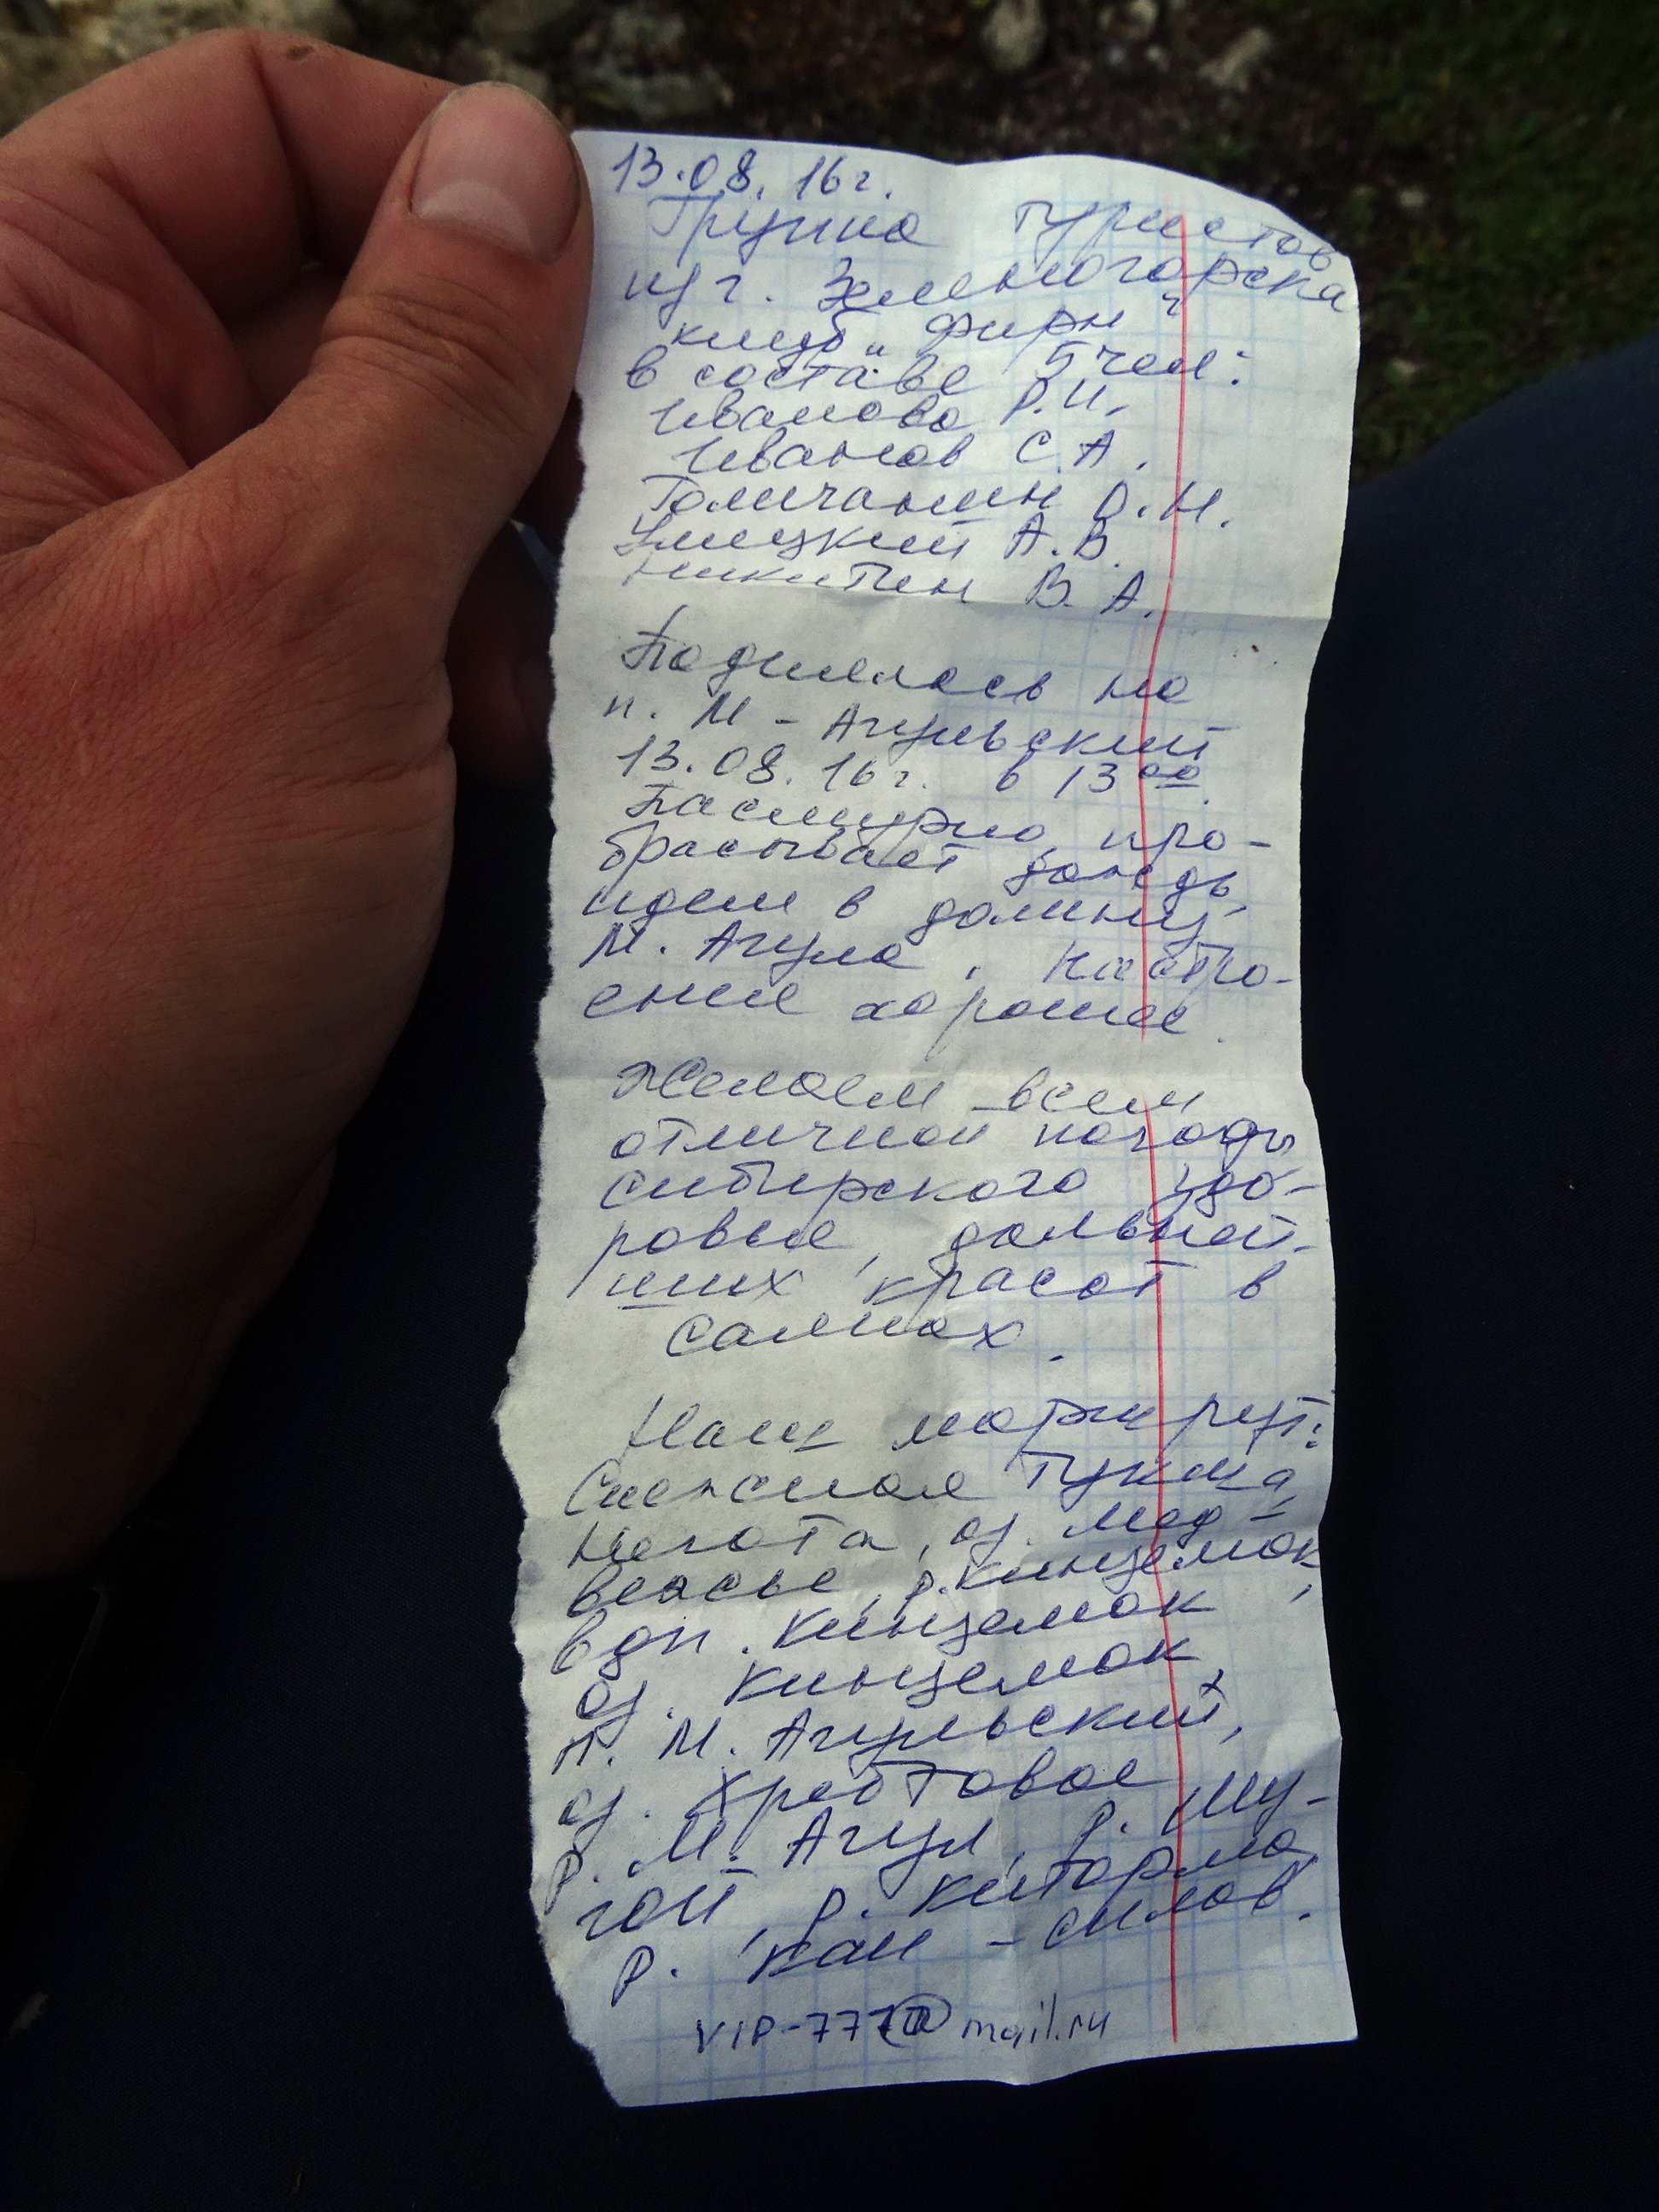 13.08.16г.
Группа туристов
из г. Зеленогорска
клуб „Фирн"
в составе 5 чел:
Иванова Р.И.
Иванов С.А.
Толичанин О.Н.
Улицкий А.В.
Никитин В.А.
Поднялась на
п. М-Агульский
13.08.16г. в 13⁰⁰.
Пасмурно, про-
брасывает дождь,
идем в долину
М. Агула. Настро-
ение хорошее.
Желаем всем
отличной погоды,
сибирского здо-
ровье, дальней-
ших красот в
саянах.
Наш маршрут:
Снежная Тукша,
Негота, оз. Мед-
вежье, р. Кинзелюк,
вдп. Кинзелюк
оз. Кинзелюк,
п. М. Агульский,
оз. Хребтовое
р. М. Агул, р. Му-
гой, р. Киторма,
р. Кан - сплав.
VIP-777@mail.ru